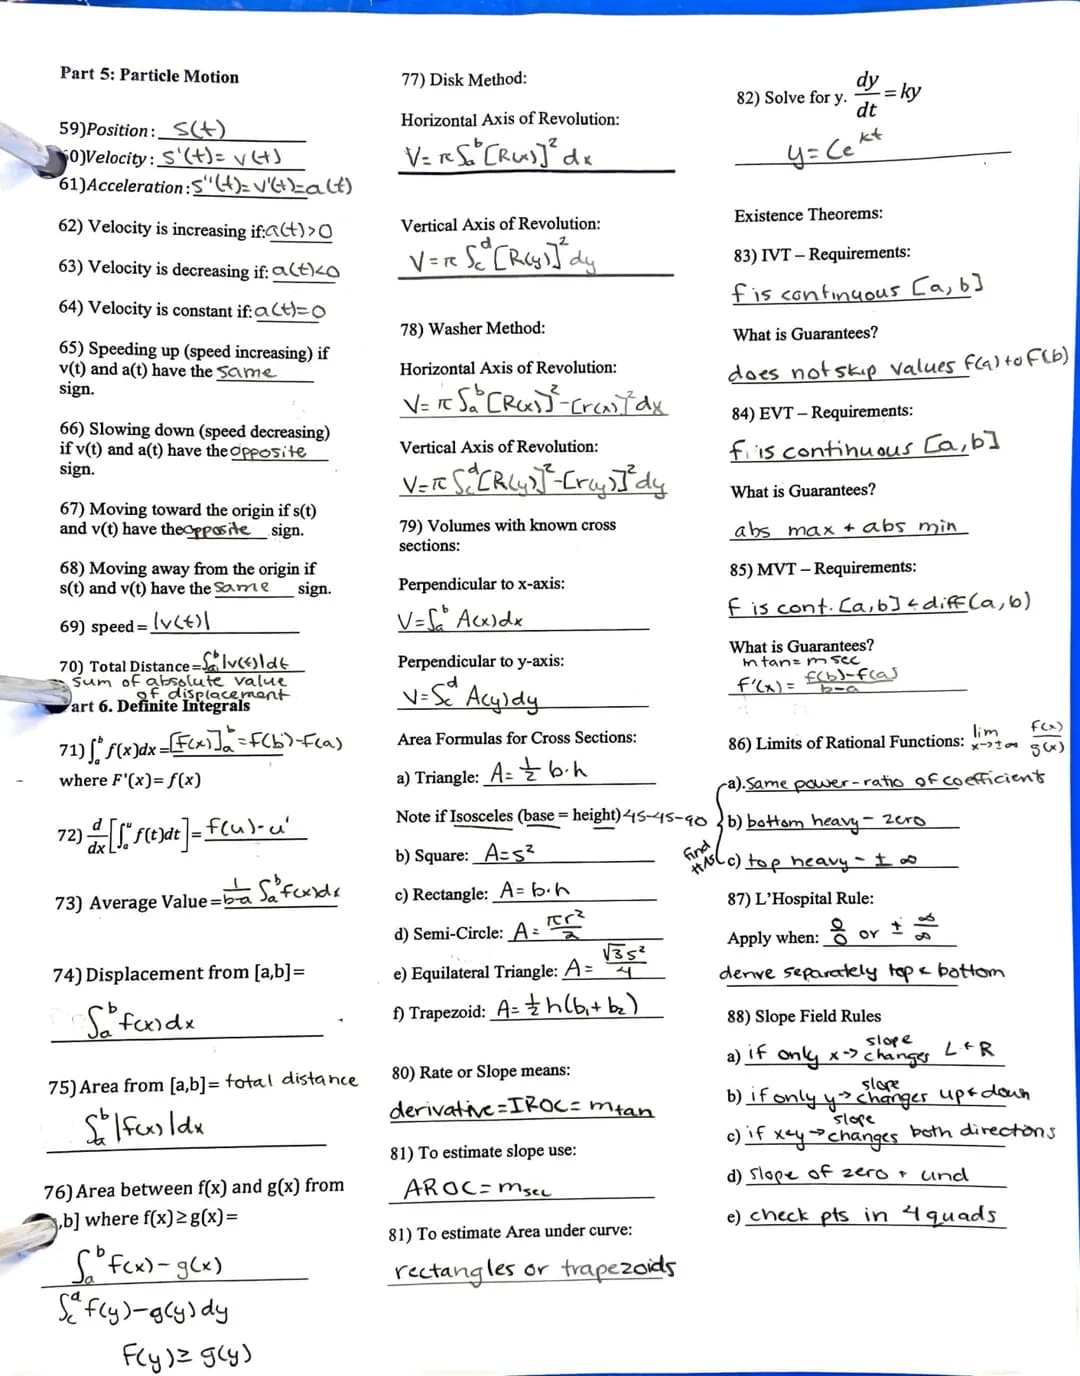 Part 5: Particle Motion
59)Position: s(t)
0)Velocity: s'(t)= v(t)
61)Acceleration: s''(t)=v'(t)=a(t)
62) Velocity is increasing if: a(t)>0
63) Velocity is decreasing if: a(t)<0
64) Velocity is constant if: a(t)=0
65) Speeding up (speed increasing) if
v(t) and a(t) have the same
sign.
66) Slowing down (speed decreasing)
if v(t) and a(t) have the opposite
sign.
67) Moving toward the origin if s(t)
and v(t) have the opposite sign.
68) Moving away from the origin if
s(t) and v(t) have the same sign.
69) speed = |v(t)|
70) Total Distance = ∫ₐᵇ|v(t)|dt
sum of absolute value
of displacement
art 6. Definite Integrals
71) ∫ₐᵇ f(x)dx = [F(x)]ₐᵇ = F(b)-F(a)
where F'(x)= f(x)
72) d/dx [∫ₐᵘ f(t)dt] = f(u)-u'
73) Average Value = 1/b-a ∫ₐᵇ f(x)dx
74) Displacement from [a,b]=
∫ₐᵇ f(x)dx
75) Area from [a,b]= total distance
∫ₐᵇ |f(x)|dx
76) Area between f(x) and g(x) from
,b] where f(x)≥g(x)=
∫ₐᵇ f(x)-g(x)
∫ f(y)-g(y)dy
F(y)≥ g(y)
77) Disk Method:
Horizontal Axis of Revolution:
V= π∫ₐᵇ[R(x)]² dx
Vertical Axis of Revolution:
V=π ∫cᵈ [R(y)]² dy
78) Washer Method:
Horizontal Axis of Revolution:
V= π ∫ₐᵇ[R(x)]²-[r(x)]²dx
Vertical Axis of Revolution:
V=π ∫cᵈ[R(y)]²-[r(y)]²dy
79) Volumes with known cross
sections:
Perpendicular to x-axis:
V=∫ₐᵇ A(x)dx
Perpendicular to y-axis:
V=∫cᵈ A(y)dy
Area Formulas for Cross Sections:
a) Triangle: A= ½ b·h
Note if Isosceles (base = height) 45-45-90
b) Square: A=s²
c) Rectangle: A= b·h
d) Semi-Circle: A= πr²/2
e) Equilateral Triangle: A= √3s²/4
f) Trapezoid: A= ½ h(b₁+b₂)
80) Rate or Slope means:
derivative=IROC= mtan
81) To estimate slope use:
AROC= msec
81) To estimate Area under curve:
rectangles or trapezoids
82) Solve for y. dy/dt = ky
y= Ce^kt
Existence Theorems:
83) IVT – Requirements:
f is continuous [a,b]
What is Guarantees?
does not skip values f(a) to F(b)
84) EVT – Requirements:
f is continuous [a,b]
What is Guarantees?
abs max + abs min
85) MVT – Requirements:
f is cont. [a,b] & diff(a,b)
What is Guarantees?
mtan= msec
f'(x)= f(b)-f(a)/b-a
86) Limits of Rational Functions: lim x→±∞ f(x)/g(x)
a).Same power-ratio of coefficient
b) bottom heavy- zero
find HAs
c) top heavy - ± ∞
87) L'Hospital Rule:
Apply when: 0/0 or ± ∞/∞
derive separately top & bottom
88) Slope Field Rules
a) if only x→ slope changes L&R
b) if only y→ slope changes up&down
c) if x&y→ slope changes both directions
d) slope of zero + und
e) check pts in 4 quads